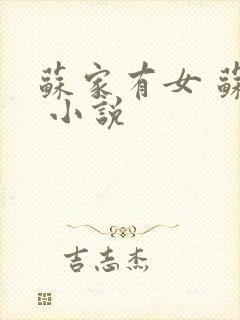 蘇家有女 蘇
小說
吉志杰